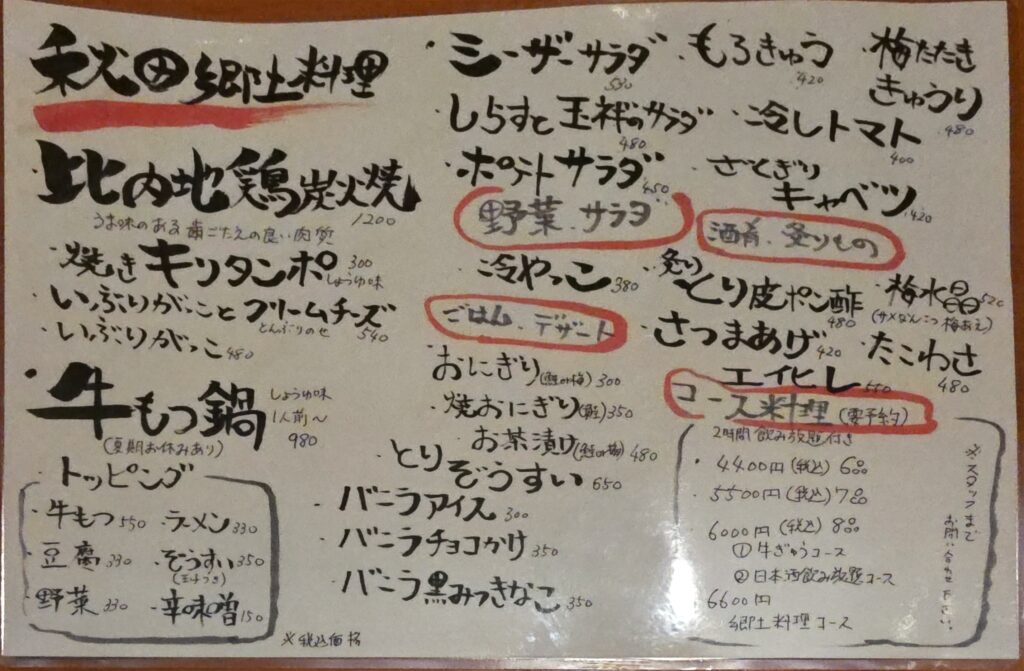 秋田郷土料理
比内地鶏炭火焼
1200
うま味のある歯ごたえの良い肉質
・焼きキリタンポ 300
しょうゆ味
・いぶりがっことクリームチーズ
とんぶりのせ 540
・いぶりがっこ 480
・牛もつ鍋
しょうゆ味
1人前〜
980
(夏期お休みあり)
トッピング
・牛もつ 550
・ラーメン 330
豆腐 330
・ぞうすい 350
(玉子つき)
野菜 330
・辛味噌 150
※税込価格
・シーザーサラダ
530
しらすと玉ネギのサラダ
480
・ポテトサラダ
450
野菜、サラダ
・もろきゅう
420
・梅たたき
きゅうり
480
・冷しトマト
400
・ざくぎり
キャベツ
420
・冷やっこ 380
ごはん、デザート
おにぎり(鮭or梅) 300
・焼おにぎり 350
・お茶漬け(鮭or梅) 480
・とりぞうすい 650
・バニラアイス 300
・バニラチョコかけ 350
・バニラ黒みつきなこ 350
酒肴、炙りもの
炙り
・とり皮ポン酢
480
・梅水晶 520
(サメなんこつ梅あえ)
・さつまあげ 420
・たこわさ
480
・エイヒレ 550
コース料理(要予約)
2時間飲み放題付き
・4400円(税込) 6品
・5500円(税込) 7品
・6000円(税込) 8品
①牛ぎゅうコース
②日本酒飲み放題コース
・6600円
郷土料理コース
※スタッフまで
お問い合わせ下さい